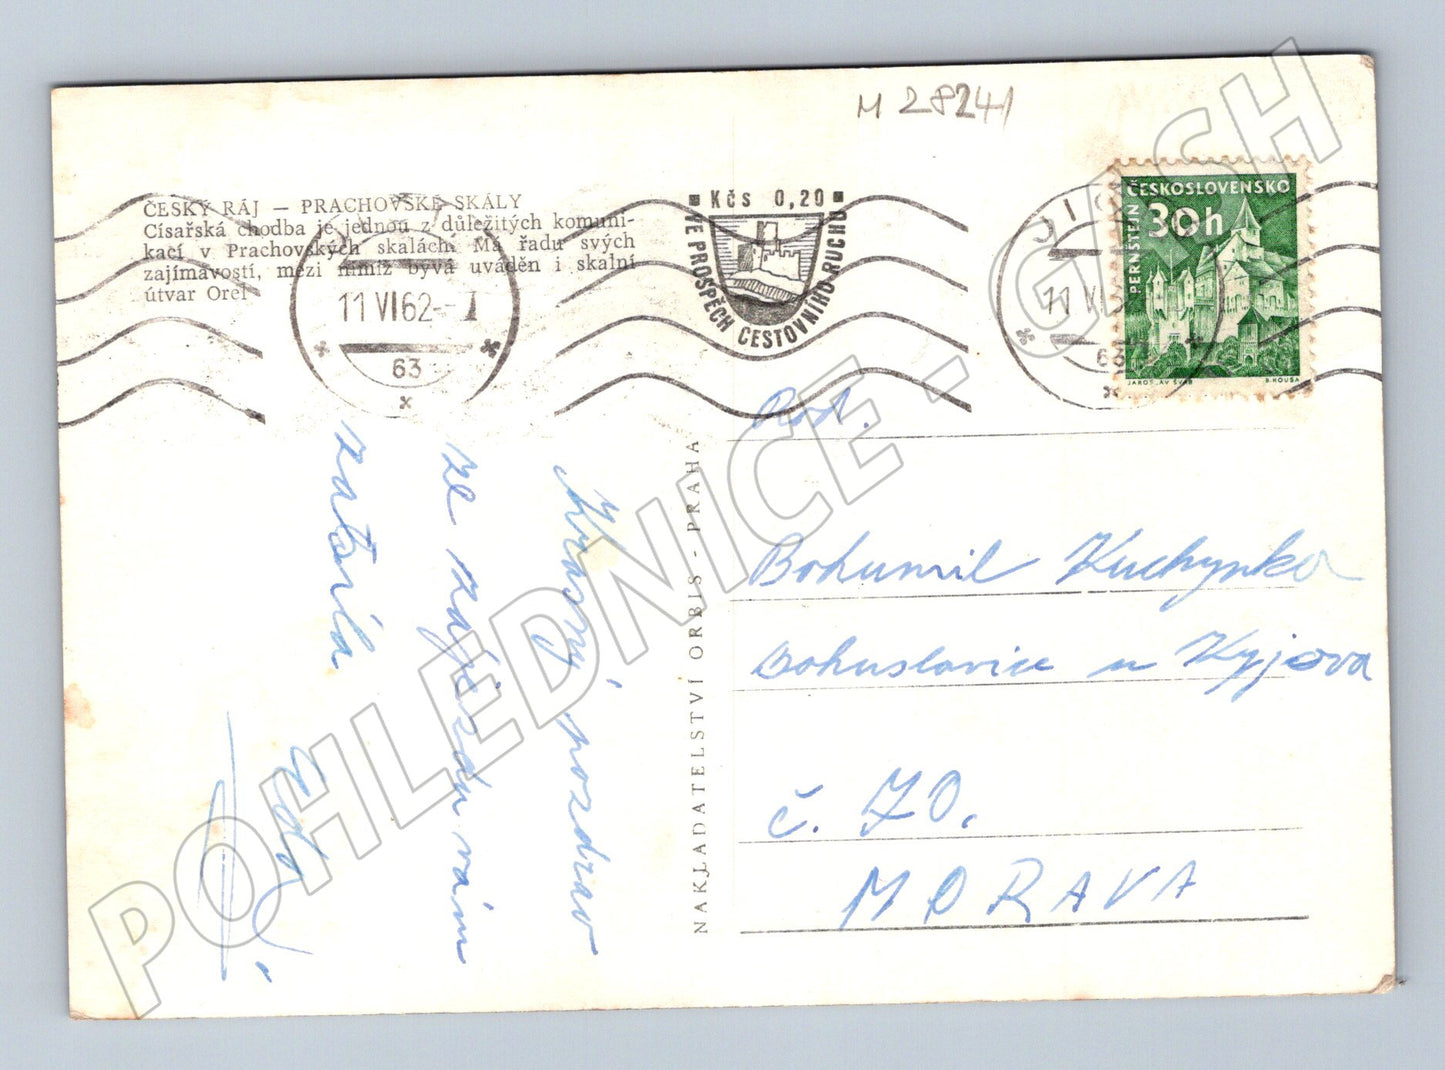 M 28241
ČESKÝ RÁJ — PRACHOVSKÉ SKÁLY
Císařská chodba je jednou z důležitých komuni-
kací v Prachovských skalách. Má řadu svých
zajímavostí, mezi nimiž bývá uváděn i skalní
útvar Orel
11 VI 62 - 7
63
x
Kčs 0,20
VE PROSPĚCH CESTOVNÍHO RUCHU
JIČ
11 VI
63
ČESKOSLOVENSKO
30h
PERNŠTEJN
JAROSLAV ŠVÁB
B. HOUSA
Krásný pozdrav
ze zájezdu vám
NAKLADATELSTVÍ ORBIS - PRAHA
Rod.
Bohumil Kuchynka
Bohuslavice u Kyjova
č. 70.
MORAVA
POHLEDNICE - GASH